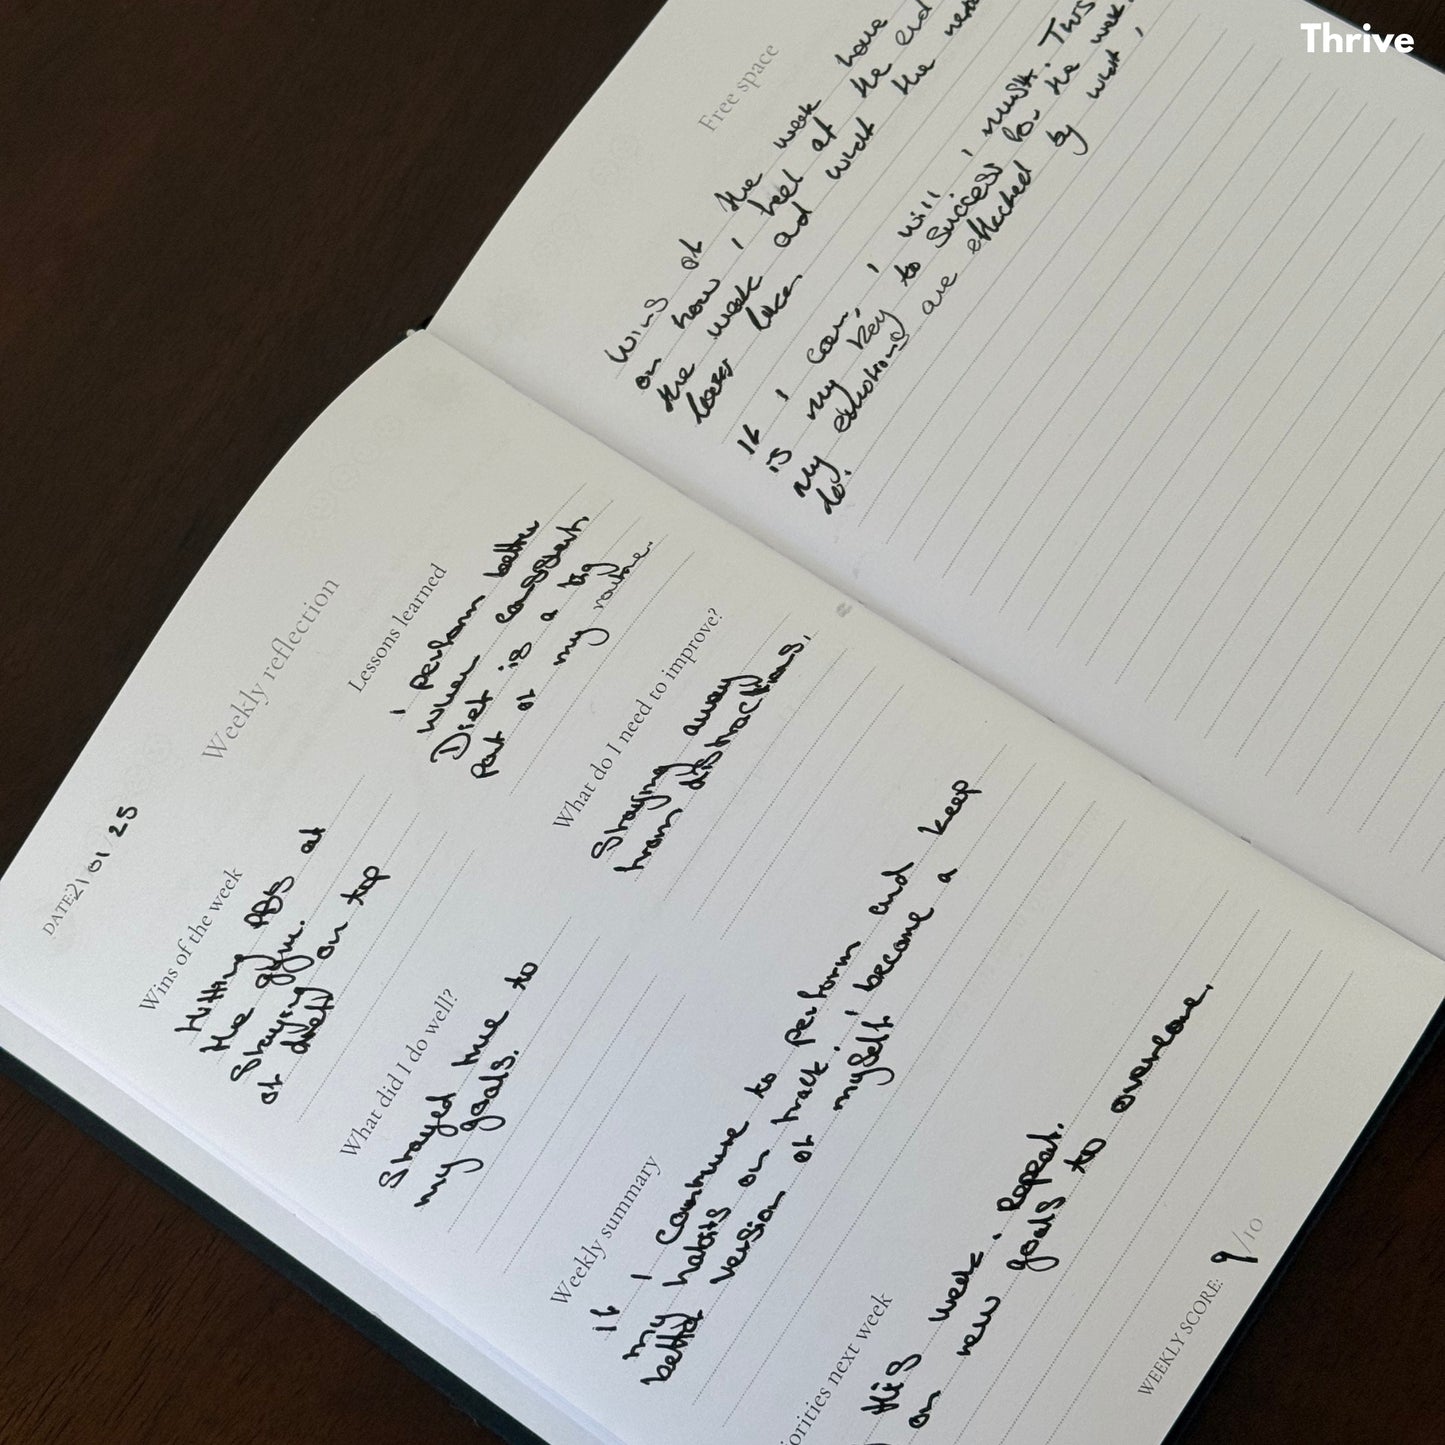 Thrive
DATE: 21/01/25
Weekly reflection
Wins of the week
Hitting ABS at
the gym.
Staying on top
of diet
Lessons learned
I perform better
when consistent.
Diet is a big
part of my routine.
What did I do well?
Stayed true to
my goals.
What do I need to improve?
Staying away
from distractions.
Weekly summary
If I continue to perform and keep
my habits on track. I become a
better version of myself
iorities next week
this week. Repeat.
on new goals to overcome.
WEEKLY SCORE: 9/10
Free space
Wins of the week have
on how I feel at the end
the week and what the next
looks like
If I can, I will, I must. This
is my key to success for the week.
my emotions are effected by what I
do.